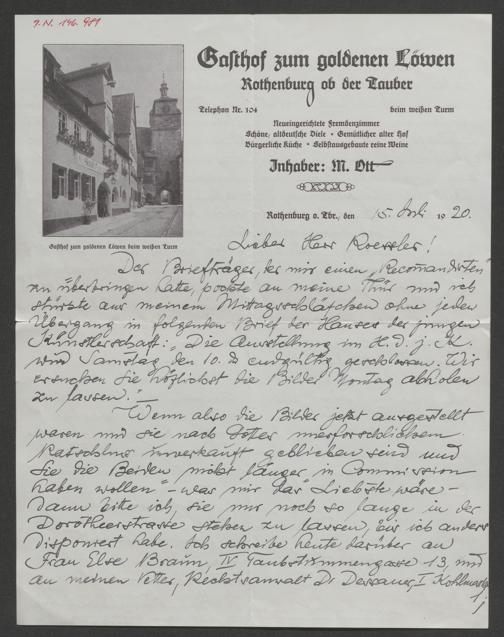 J.N. 146.981
Gasthof zum goldenen Löwen
Rothenburg ob der Tauber
Telephon Nr. 104 beim weißen Turm
Neueingerichtete Fremdenzimmer
Schöne, altdeutsche Diele • Gemütlicher alter Hof
Bürgerliche Küche • Selbstausgebaute reine Weine
Inhaber: M. Ott
Gasthof zum goldenen Löwen beim weißen Turm
Rothenburg o. Tbr., den 15. Juli 1920.
Lieber Herr Roessler!
Der Briefträger, der mir einen „Recomandirten"
zu überbringen hatte, pochte an meine Thür und ich
stürzte aus meinem Mittagsschläfchen ohne jeden
Übergang in folgenden Brief des Hauses der jungen
Künstlerschaft: „Die Ausstellung im H. d. j. K.
wird Samstag den 10. d. endgültig geschlossen. Wir
ersuchen Sie höflichst die Bilder Montag abholen
zu lassen." —
Wenn also die Bilder jetzt ausgestellt
waren und sie nach Gottes unerforschlichem
Ratschluss unverkauft geblieben sind und
Sie die Beiden nicht länger in Commission
haben wollen – was mir das Liebste wäre –
dann bitte ich, sie nur noch so lange in der
Dorotheerstrasse stehen zu lassen, bis ich anders
disponiert habe. Ich schreibe heute darüber an
Frau Else Braun, IV Taubstummengasse 13, und
an meinen Vetter, Rechtsanwalt Dr Dessauer, I Kohlmarkt